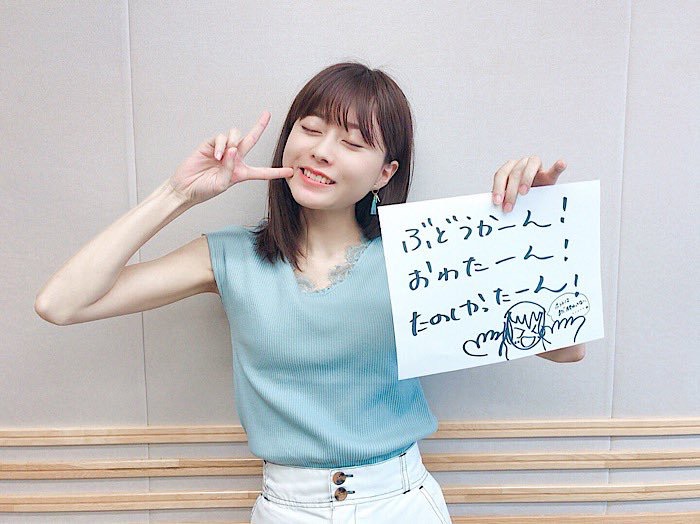 ぶどうかーん!
おわたーん!
たのしかったーん!